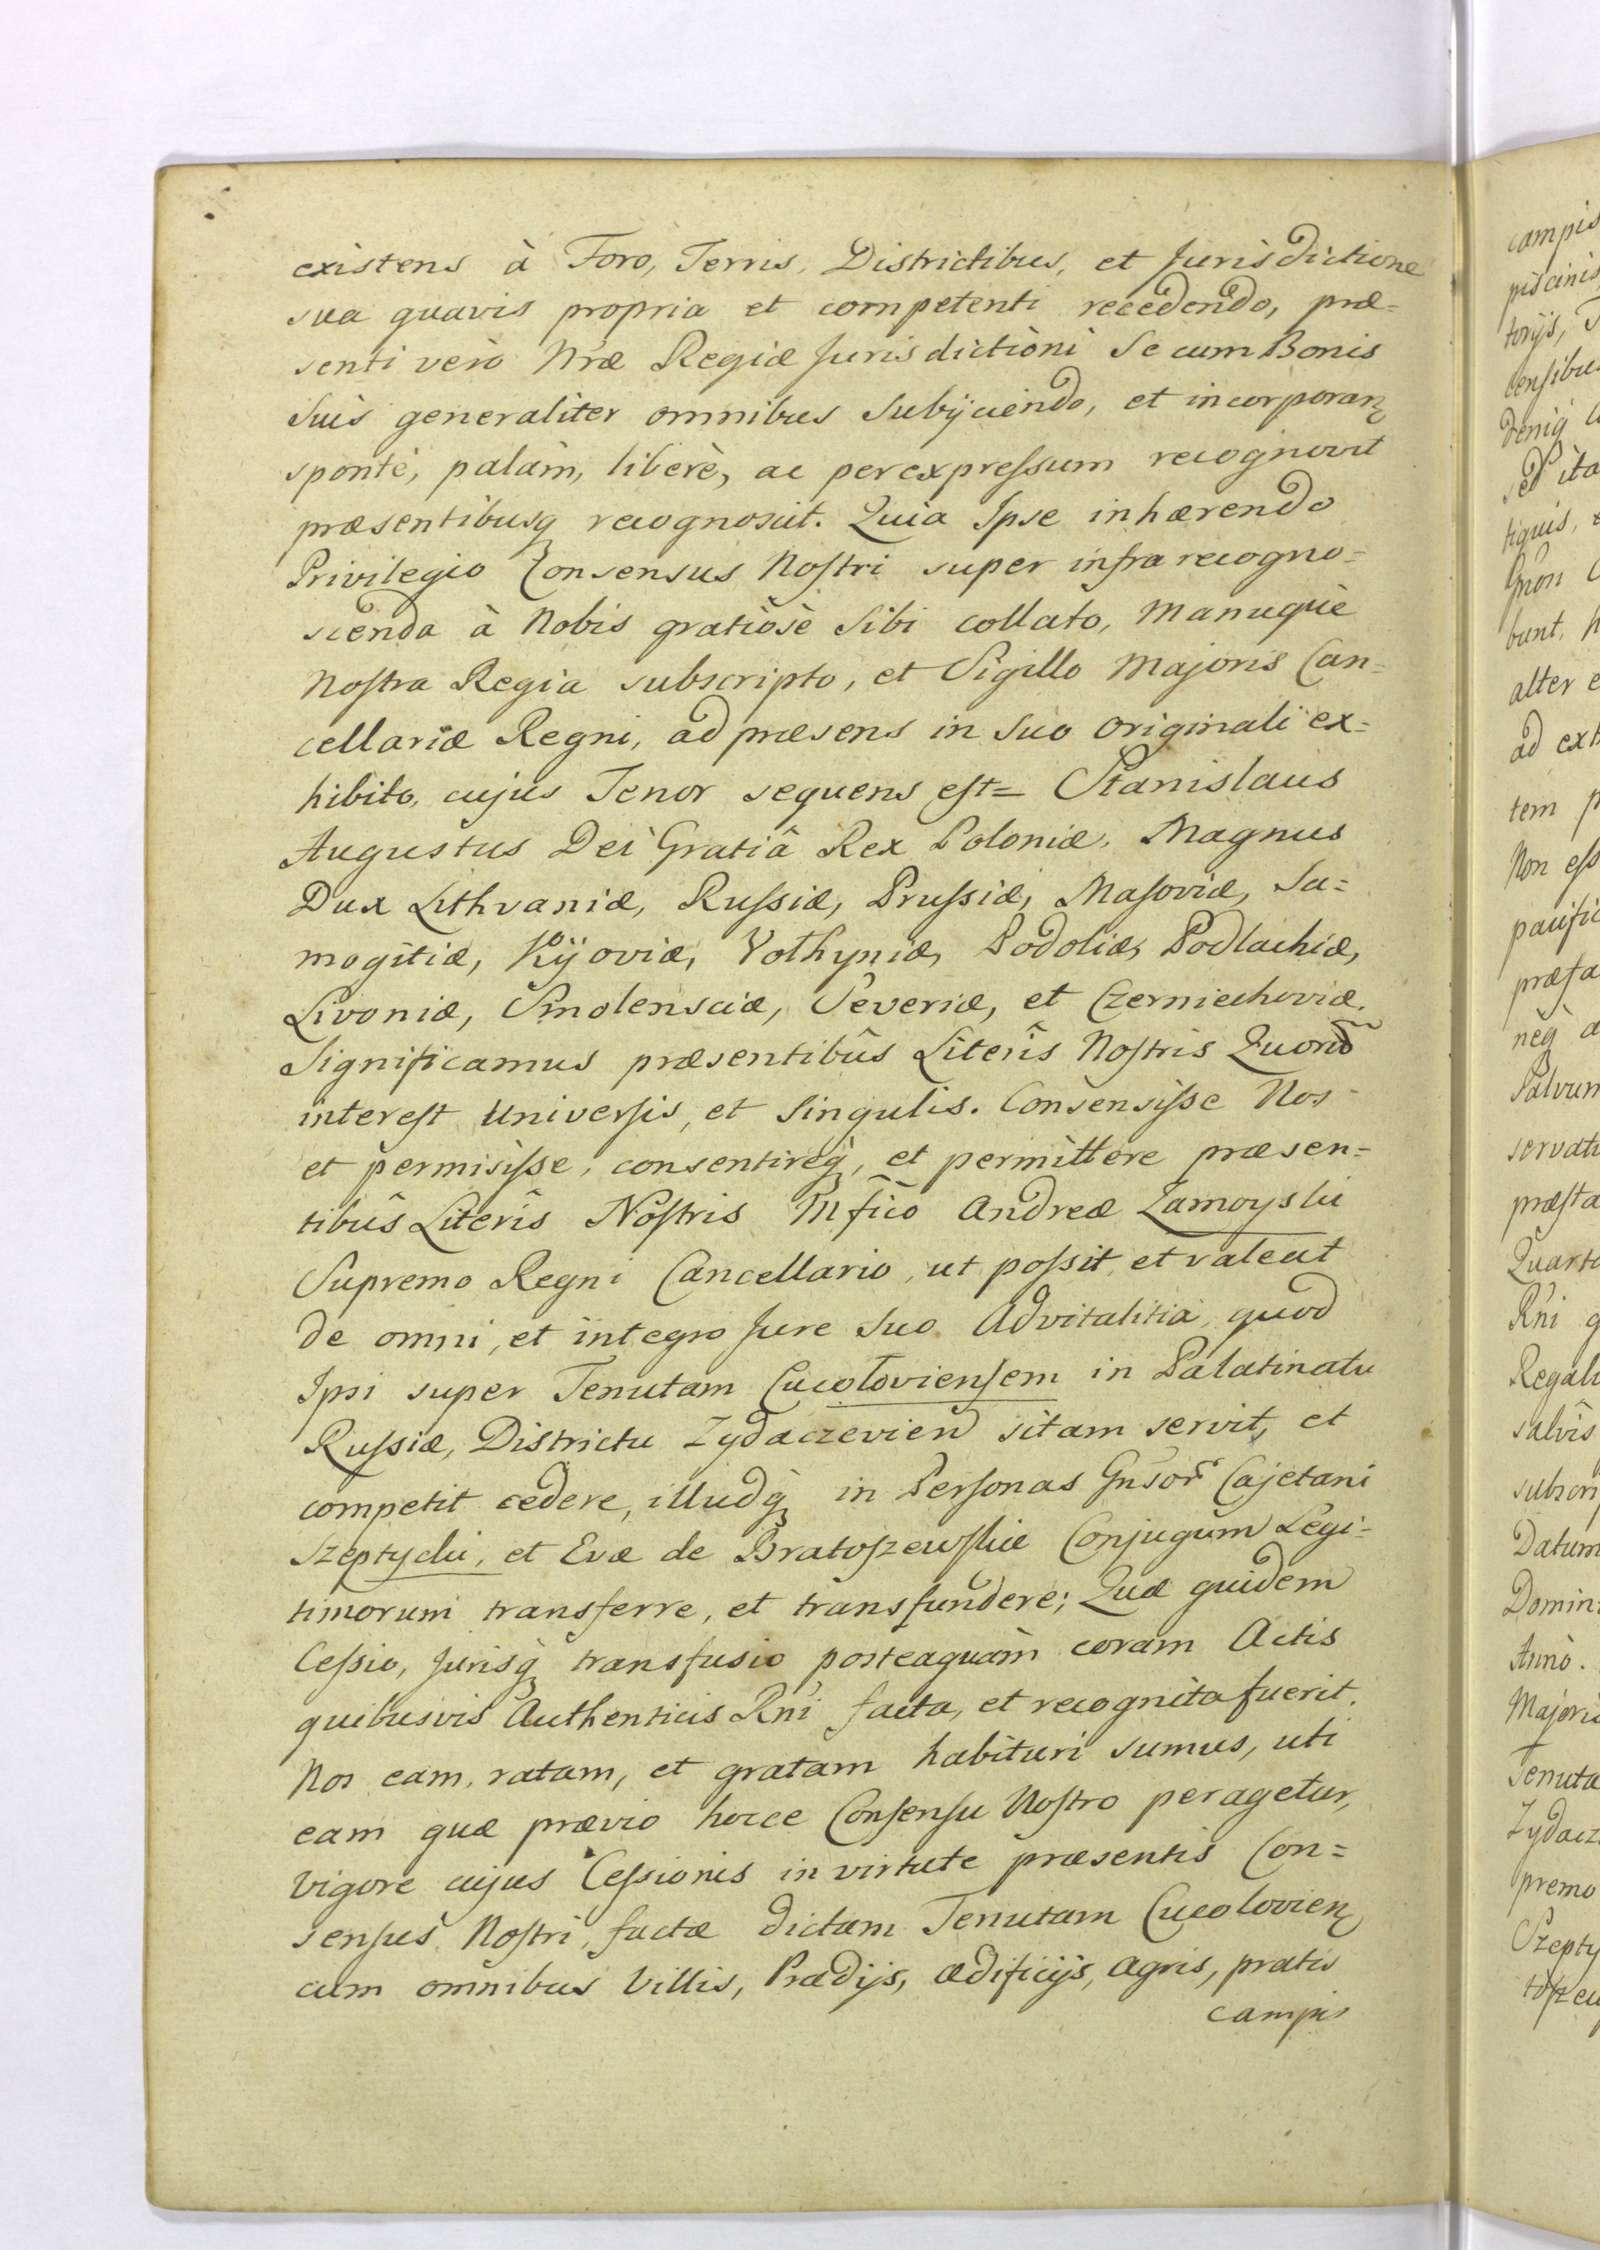 existens à Foro, Terris, Districtibus, et Jurisdictione
sua quavis propria et competenti recedendo, præ-
senti verò Nræ Regiæ Jurisdictioni Se cum Bonis
Suis generaliter omnibus Subijciendo, et incorporan
sponte, palàm, liberè, ac per expressum recognovit
præsentibusq recognoscit. Quia Ipse inhærendo
Privilegio Consensus Nostri super infra recogno-
scenda à Nobis gratiosè Sibi collato, Manuque
Nostra Regia subscripto, et Sigillo Majoris Can-
cellariæ Regni, ad præsens in Suo Originali ex-
hibito, cujus Tenor sequens est= Stanislaus
Augustus Dei Gratiâ Rex Poloniæ, Magnus
Dux Lithvaniæ, Russiæ, Prussiæ, Masoviæ, Sa=
mogitiæ, Kijoviæ, Volhyniæ, Podoliæ, Podlachiæ,
Livoniæ, Smolensciæ, Severiæ, et Czerniechoviæ.
Significamus præsentibûs Literîs Nostris Quorũ
interest Universis, et Singulis. Consensisse Nos
et permisisse, consentireq, et permittere præsen-
tibûs Literîs Nostris Mfico Andreæ Zamoyski
Supremo Regni Cancellario, ut possit et valeat
de omni, et integro Jure Suo Advitalitia, quod
Ipsi super Tenutam Cucoloviensem in Palatinatu
Russiæ, Districtu Zydaczevien sitam servit, et
competit cedere, illudq in Personas Gnsor Cajetani
Szeptycki, et Evæ de Bratoszewskie Conjugum Legi-
timorum transferre, et transfundere; Quæ quidem
Cessio, Jurisq transfusio posteaquàm coram Actis
quibusvis Authenticis Rni facta, et recognita fuerit.
Nos eam, ratam, et gratam habituri sumus, uti
eam quæ prævio hocce Consensu Nostro peragetur,
Vigore cujus Cessionis in virtute præsentis Con=
sensus Nostri, factæ dictam Tenutam Cucolovien
cum omnibus Villis, Prædijs, ædificijs, agris, pratis
campis
campis
piscinis
torijs,
censibus
deniq
sed ita
tiquis,
Gnon
bunt,
alter e
ad ext
tem p
Non ess
pacific
præfa
neq a
Salvum
servat
præsta
Quarta
Rni q
Regali
salvis
subscri
Datum
Domin
Anno.
Majoris
Tenuta
Zydacz
premo
Szepty
toszew